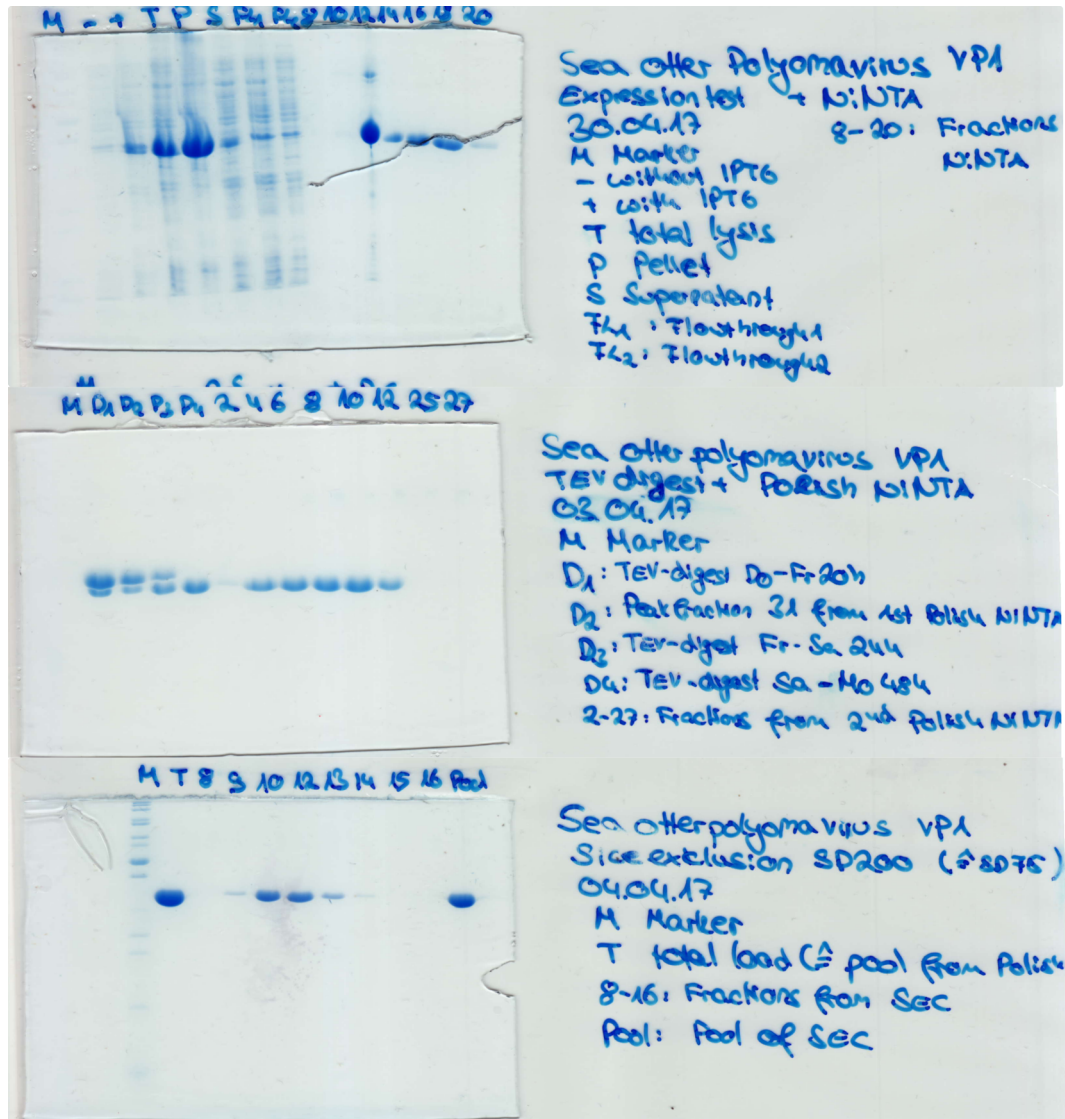 M - + T P S FL1 FL2 8 10 12 14 16 18 20
Sea otter Polyomavirus VP1
Expression test + NiNTA
30.04.17 8-20: Fractions
NiNTA
M Marker
- without IPTG
+ with IPTG
T total lysis
P Pellet
S Supernatant
FL1: Flowthrough1
FL2: Flowthrough2
M D1 D2 D3 D4 2 4 6 8 10 12 25 27
Sea otter polyomavirus VP1
TEV digest + Polish NiNTA
03.04.17
M Marker
D1: TEV-digest Do-Fr 20h
D2: Peak fraction 31 from 1st Polish NiNTA
D3: TEV-digest Fr-Sa 24h
D4: TEV-digest Sa-Mo 48h
2-27: Fractions from 2nd Polish NiNTA
M T 8 9 10 12 13 14 15 16 Pool
Sea otter polyomavirus VP1
Size exklusion SD200 (≙SD75)
04.04.17
M Marker
T total load (≙ pool from Polish
8-16: Fractions from SEC
Pool: Pool of SEC